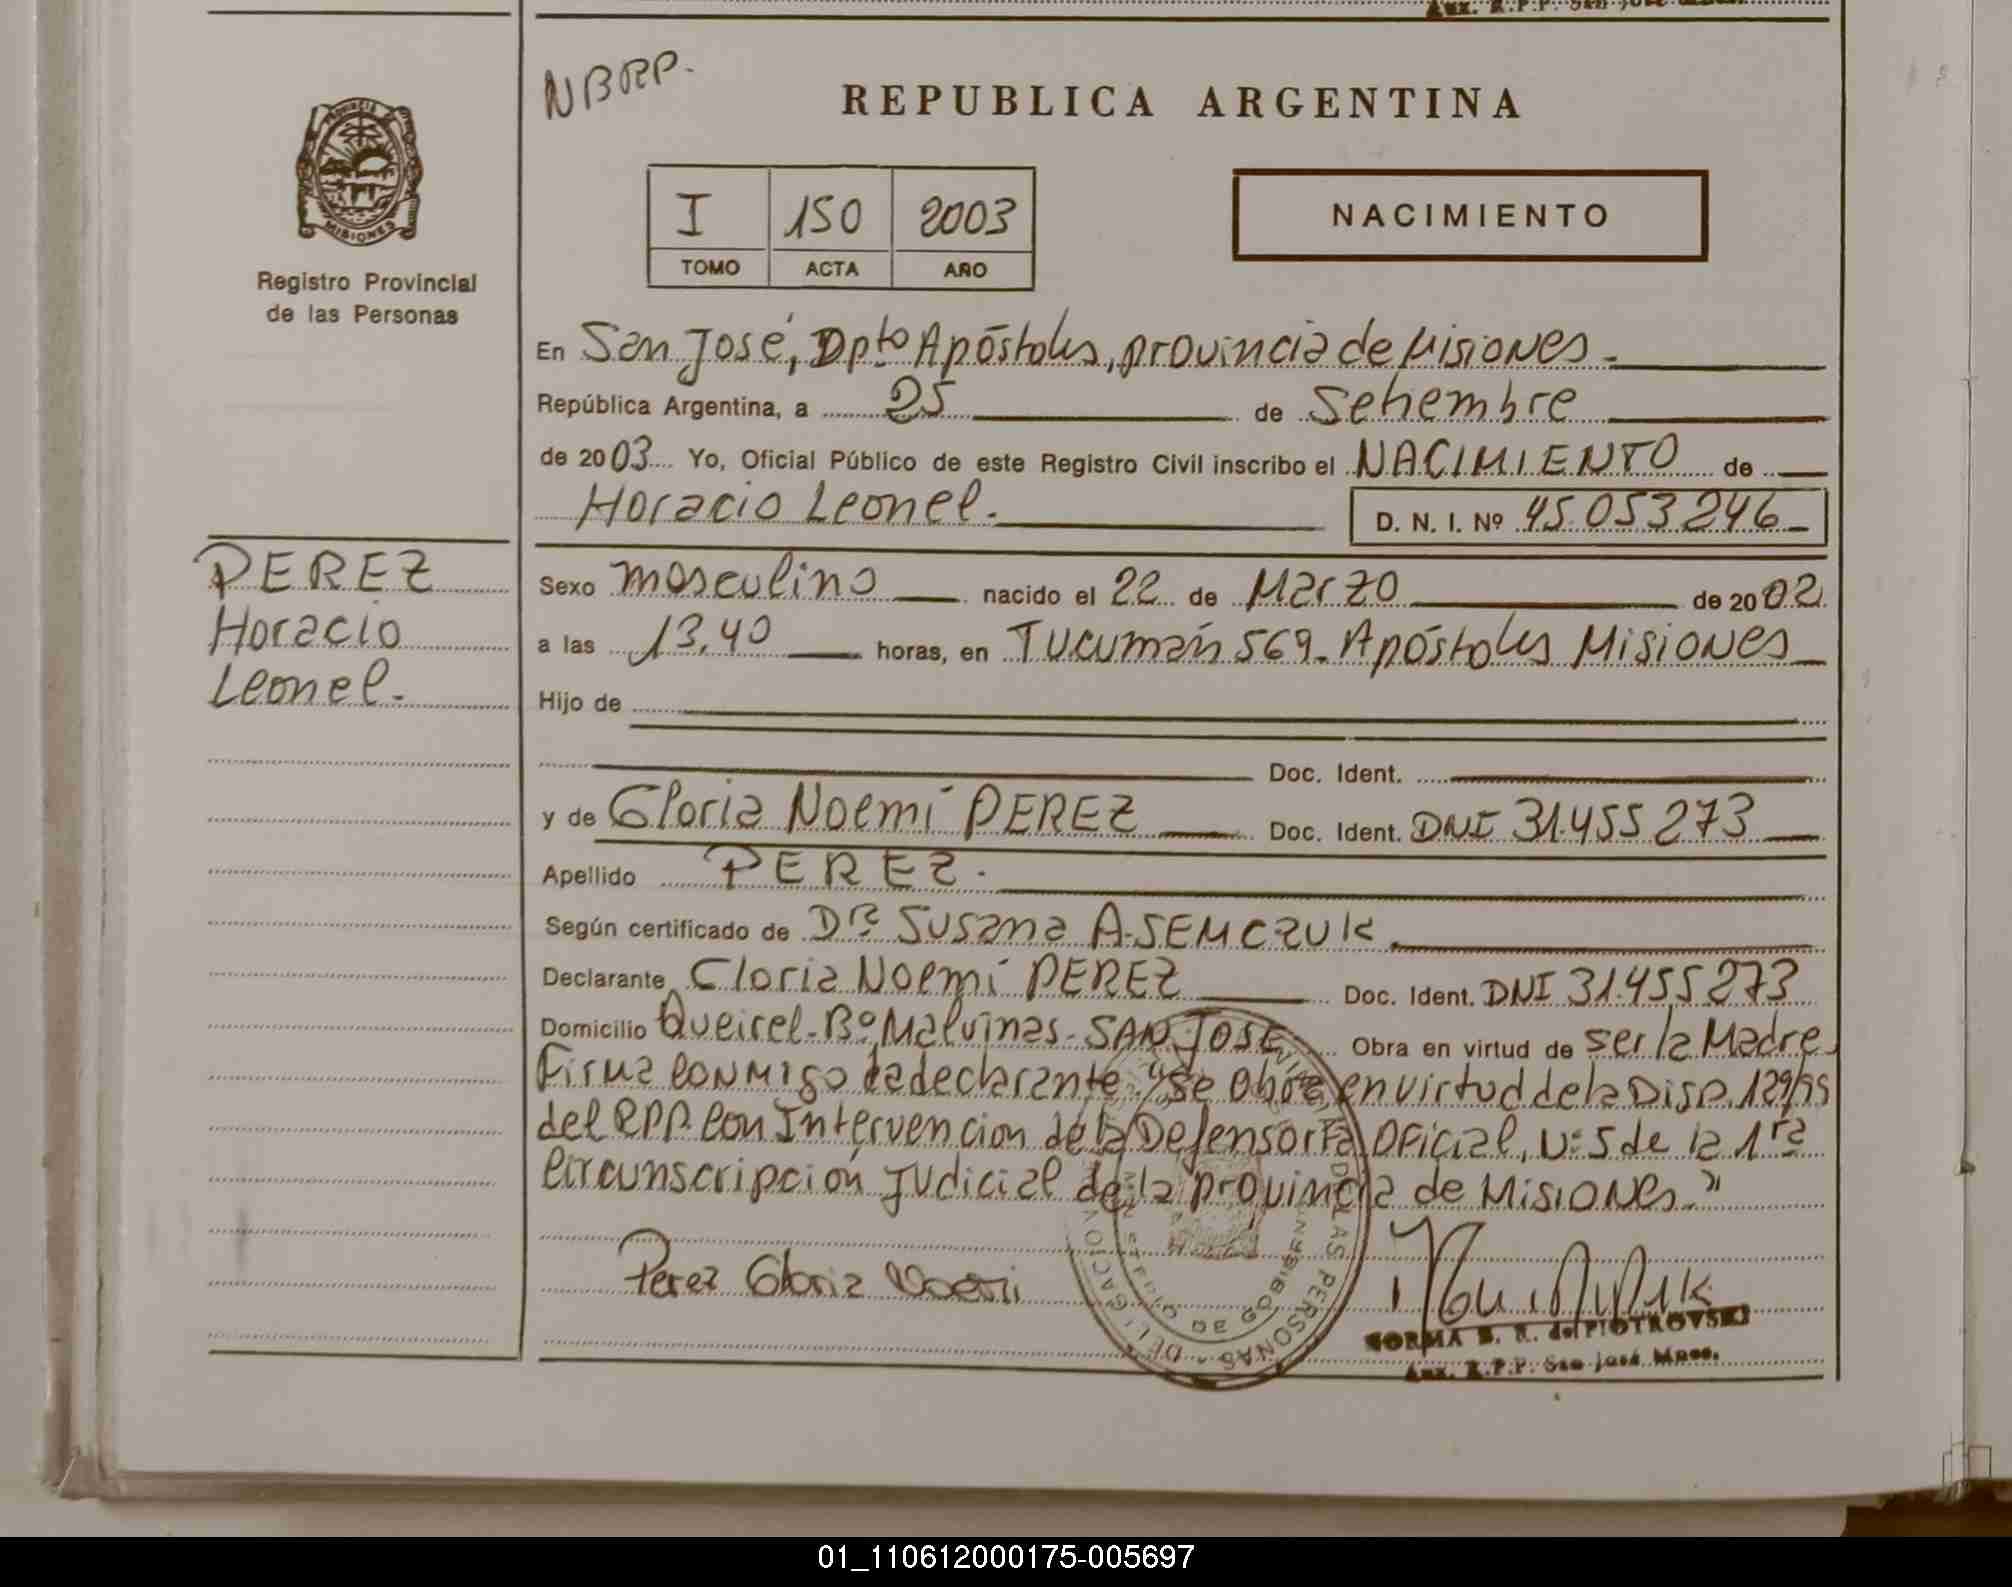 Aux. R.P.P. San José
NBRP.
REPUBLICA ARGENTINA
PROVINCIA
MISIONES
Registro Provincial
de las Personas
I 150 2003
TOMO ACTA AÑO
NACIMIENTO
En San José, Dpto Apóstoles, provincia de Misiones.
República Argentina, a 25 de Setiembre
de 2003 Yo, Oficial Público de este Registro Civil inscribo el NACIMIENTO de
Horacio Leonel.
D. N. I. Nº 45.053.246
PEREZ
Horacio
Leonel.
Sexo masculino nacido el 22 de Marzo de 2002
a las 13,40 horas, en Tucumán 569. Apóstoles Misiones
Hijo de
Doc. Ident.
y de Gloria Noemí PEREZ Doc. Ident. DNI 31.455.273
Apellido PEREZ.
Según certificado de Dra Susana A. SEMCZUK
Declarante Gloria Noemí PEREZ Doc. Ident. DNI 31.455.273
Domicilio Queirel - Bº Malvinas - SAN JOSE Obra en virtud de ser la Madre
Firma conmigo la declarante. "se obra en virtud de la Disp. 129/95
del RPP. con Intervencion de la Defensoría Oficial, Nº 5 de la 1ra
Circunscripción Judicial de la provincia de Misiones."
Perez Gloria Noemi
DE LAS PERSONAS
NORMA B. R. de PIOTROVSKI
Aux. R.P.P. San José Mnes.
01_110612000175-005697